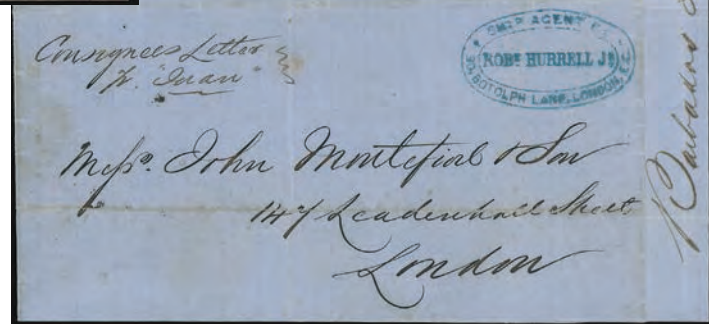 Consignees Letter
p. "Juan"
SHIP AGENT
ROBT HURRELL JR
30, BOTOLPH LANE, LONDON, E.C.
Messrs. John Montefiore & Son
147 Leadenhall Street
London
Barbados